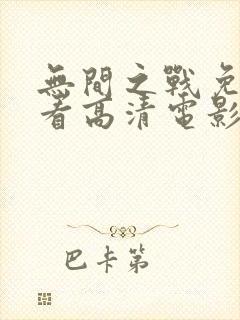 無間之戰免
看高清電影
巴卡第